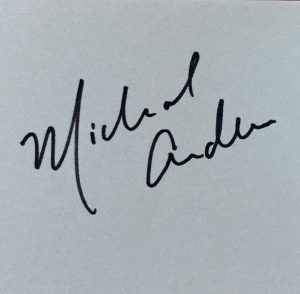 Michael
Anden